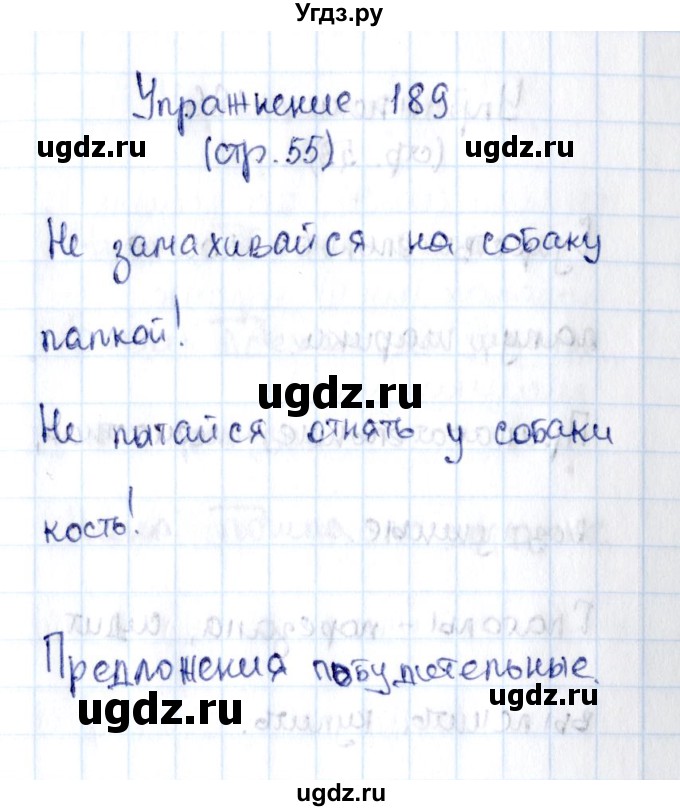 Угдз.ру
Упражнение 189
ugdz.ru (стр. 55) ugdz.ru
Не замахивайся на собаку
папкой!
ugdz.ru
ugdz.ru
Не пытайся отнять у собаки
кость!
Предложения побудительные.
ugdz.ru ugdz.ru
ugdz.ru